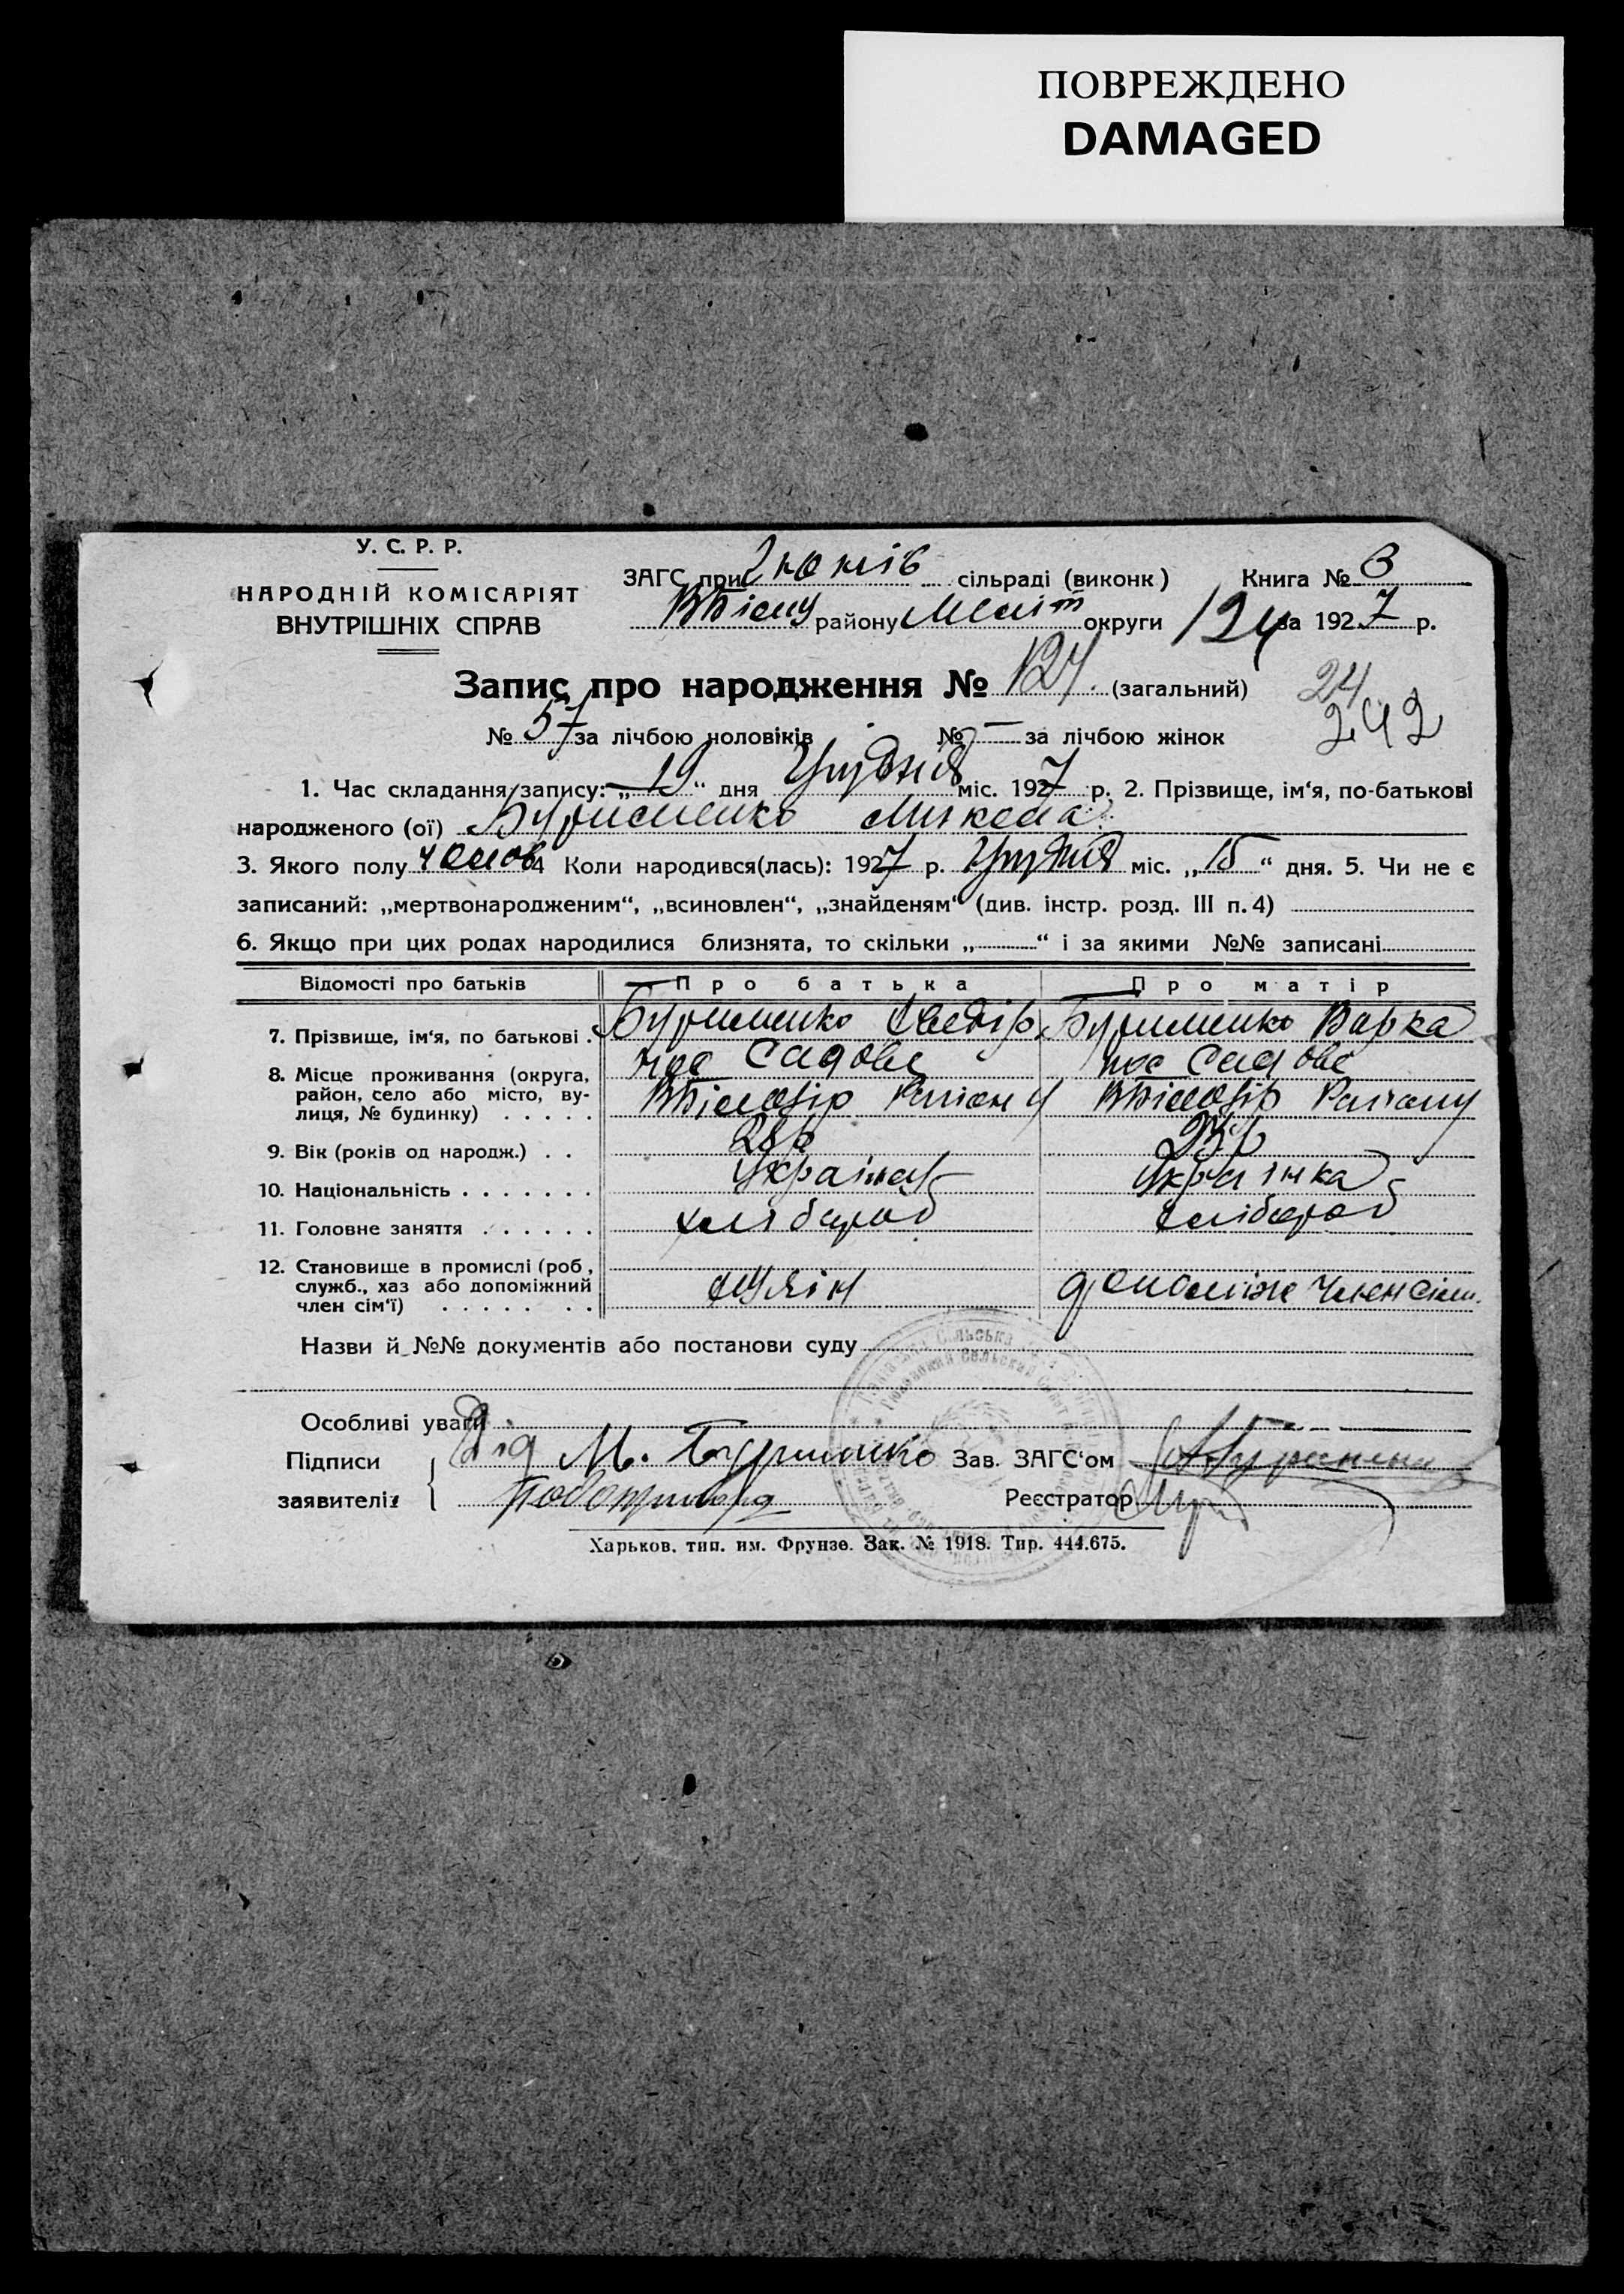 ПОВРЕЖДЕНО
DAMAGED
У. С. Р. Р.
НАРОДНІЙ КОМІСАРІЯТ
ВНУТРІШНІХ СПРАВ
ЗАГС при сільраді (виконк) Книга № 3
району Меліт округи 124 за 1927 р.
Запис про народження № 124. (загальний)
24
242
№ 57 за лічбою чоловіків № — за лічбою жінок
1. Час складання запису: „19“ дня Грудня міс. 1927 р. 2. Прізвище, ім‘я, по-батькові
народженого (ої) Бурименко Микола
3. Якого полу чолов 4 Коли народився(лась): 1927 р. Грудня міс. „15“ дня. 5. Чи не є
записаний: „мертвонародженим“, „всиновлен“, „знайденям“ (див. інстр. розд. III п. 4)
6. Якщо при цих родах народилися близнята, то скільки „ “ і за якими №№ записані
Відомості про батьків Про батька Про матір
7. Прізвище, ім‘я, по батькові . Бурименко Бурименко Варка
8. Місце проживання (округа, район, село або місто, вулиця, № будинку) . . . . . пос Садове ВБілозір Району пос Садове ВБілозір Району
9. Вік (років од народж.) . . 28 р
10. Національність . . . . . . . Українец Українка
11. Головне заняття . . . . . . хлібороб хлібороб
12. Становище в промислі (роб, служб., хаз або допоміжний член сім‘ї) . . . . . . . допоміж член сім.
Назви й №№ документів або постанови суду
Особливі уваги
Підписи заявителів Дід М. Бурименко Зав. ЗАГС‘ом
Реєстратор
Харьков. тип. им. Фрунзе. Зак. № 1918. Тир. 444.675.